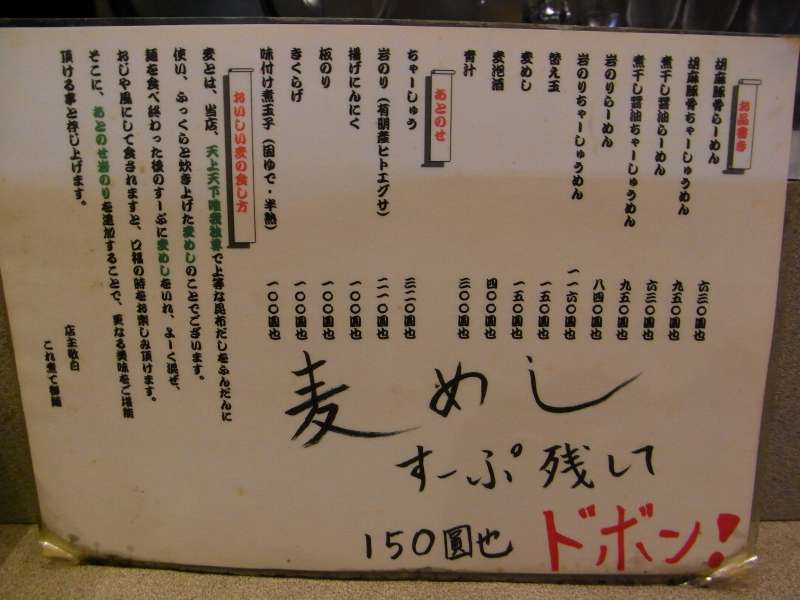 お品書き
胡麻豚骨らーめん 六三〇圓也
胡麻豚骨ちゃーしゅうめん 九五〇圓也
煮干し醤油らーめん 六三〇圓也
煮干し醤油ちゃーしゅうめん 九五〇圓也
岩のりらーめん 八四〇圓也
岩のりちゃーしゅうめん 一一六〇圓也
替え玉 一五〇圓也
麦めし 一五〇圓也
麦泡酒 四〇〇圓也
青汁 三〇〇圓也
あとのせ
ちゃーしゅう 三二〇圓也
岩のり（有明産ヒトエグサ） 二一〇圓也
揚げにんにく 一〇〇圓也
板のり 一〇〇圓也
きくらげ 一〇〇圓也
味付け煮玉子（固ゆで・半熟） 一〇〇圓也
おいしい麦の食し方
麦とは、当店、天上天下唯麦独尊で上等な昆布だしをふんだんに
使い、ふっくらと炊き上げた麦めしのことでございます。
麺を食べ終わった後のすーぷに麦めしをいれ、よーく混ぜ、
おじや風にして食されますと、口福の時をお楽しみ頂けます。
そこに、あとのせ岩のりを追加することで、更なる美味をご堪能
頂ける事と存じ上げます。
店主敬白
これ煮て御麺
麦めし
すーぷ残して
ドボン！
150圓也